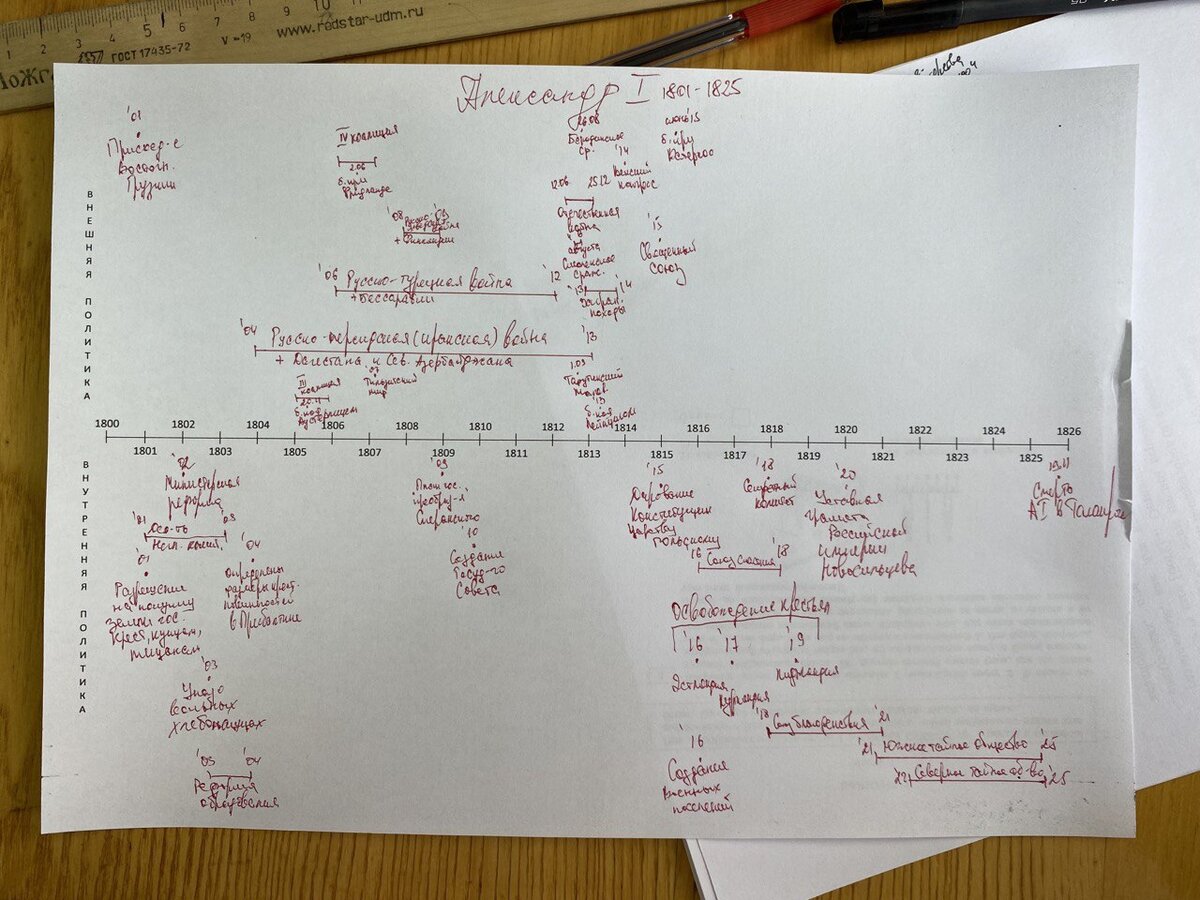 www.redstar-udm.ru
ГОСТ 17435-72
V =19
Александр I 1801-1825
ВНЕШНЯЯ ПОЛИТИКА
'01
Присоед-е
Восточн.
Грузии
IV коалиция
2.06
б. при
Фридланде
'08
'09
+ Финляндии
'06 Русско-турецкая война '12
+ Бессарабии
'04 Русско-персидская (иранская) война '13
+ Дагестана и Сев. Азербайджана
III
коалиция
20.11
б. под
Аустерлицем
'07
Тильзитский
мир
26.08
Бородинское
ср.
'14
Венский
конгресс
12.06
25.12
Отечественная
война
августа
Смоленское
сраж.
'13
'14
Загран.
походы
1.09
Тарутинский
'13
б. под
Лейпцигом
июнь'15
б. при
'15
Священный
союз
1800 1802 1804 1806 1808 1810 1812 1814 1816 1818 1820 1822 1824 1826
1801 1803 1805 1807 1809 1811 1813 1815 1817 1819 1821 1823 1825
ВНУТРЕННЯЯ ПОЛИТИКА
'02
Министерская
реформа
'01
'03
Негл. комит.
'01
Разрешение
на покупку
земли гос.
крест, купцам,
мещанам
'04
Определены
размеры крест.
повинностей
в Прибалтике
'03
Указ о
вольных
хлебопашцах
'03
'04
Реформа
образования
'09
План гос.
преобраз-й
Сперанского
'10
Создание
Госуд-го
Совета
'15
Дарование
Конституции
Царству
Польскому
'18
Секретный
комитет
'20
Уставная
грамота
Российской
империи
Новосильцева
19.11
Смерть
АI в Таганроге
'16 Союз спасения '18
Освобождение крестьян
'16 '17 '19
Эстляндия
Курляндия
Лифляндия
'18 Союз благоденствия '21
'21 Южное тайное общество '25
'22 Северное тайное об-во '25
'16
Создание
военных
поселений